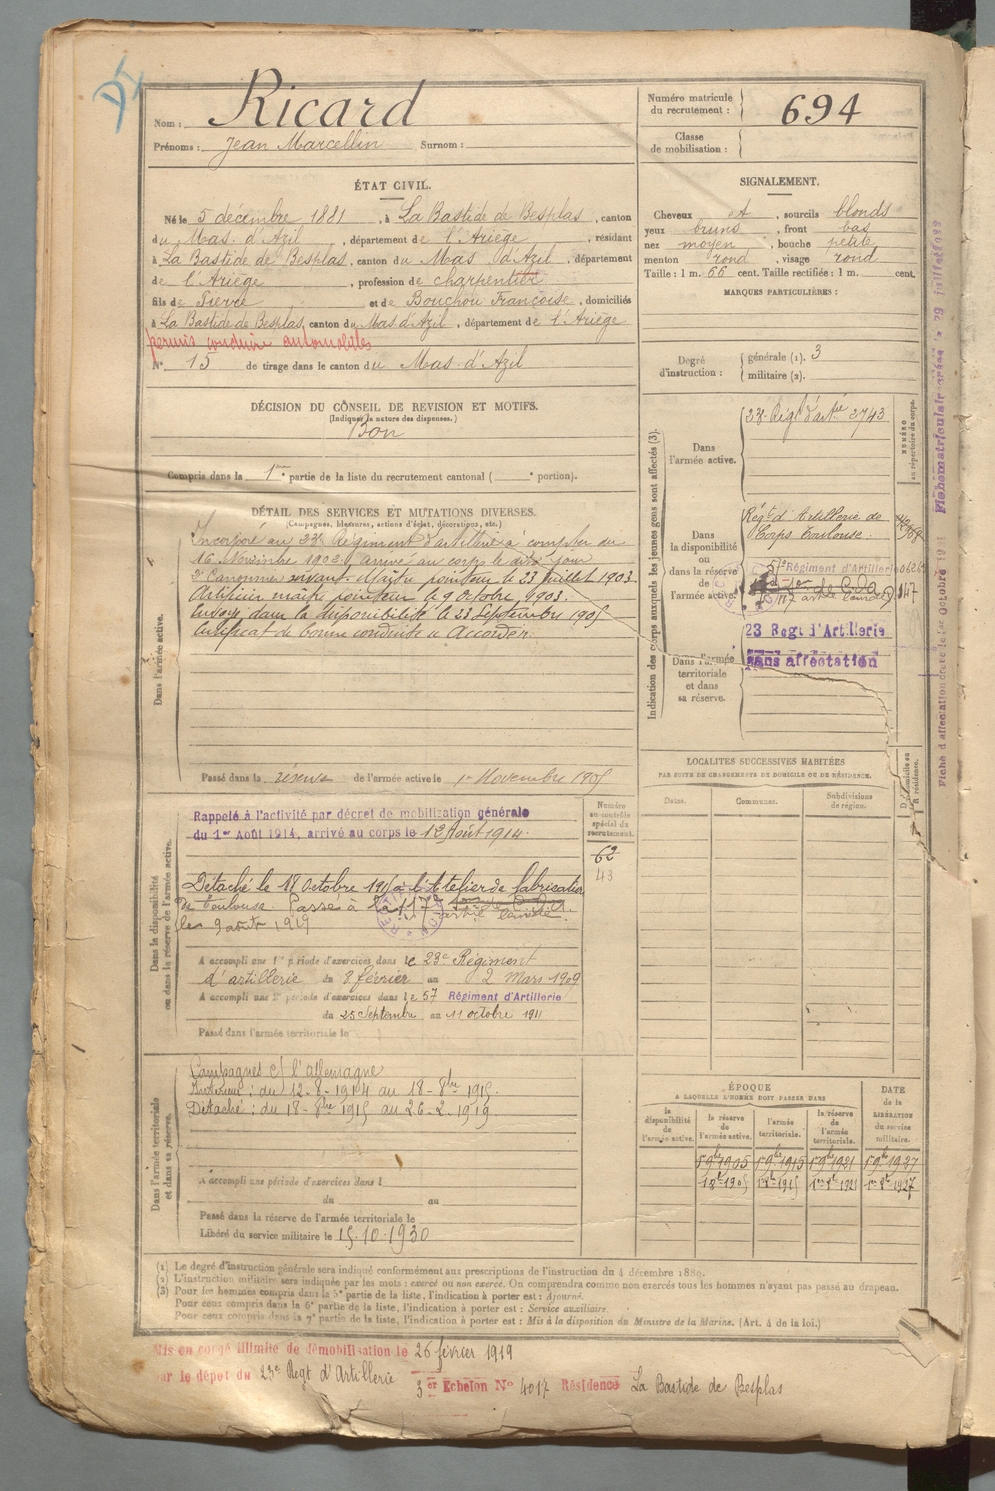 Nom : Ricard
Prénoms : Jean Marcellin Surnom :
Numéro matricule du recrutement : 694
Classe de mobilisation :
ÉTAT CIVIL.
Né le 5 décembre 1881, à La Bastide de Besplas, canton
du Mas d'Azil, département de l'Ariège, résidant
à La Bastide de Besplas, canton du Mas d'Azil, département
de l'Ariège, profession de charpentier
fils de Pierre et de Bouchou Françoise, domiciliés
à La Bastide de Besplas, canton du Mas d'Azil, département de l'Ariège
permis conduire automobiles
N° 15 de tirage dans le canton du Mas d'Azil
SIGNALEMENT.
Cheveux et, sourcils blonds
yeux bruns, front bas
nez moyen, bouche petite
menton rond, visage rond
Taille : 1 m. 66 cent. Taille rectifiée : 1 m. cent.
MARQUES PARTICULIÈRES :
Degré d'instruction : générale (1). 3
militaire (2).
DÉCISION DU CONSEIL DE REVISION ET MOTIFS.
(Indiquer la nature des dispenses.)
Bon
Compris dans la 1re partie de la liste du recrutement cantonal ( e portion).
DÉTAIL DES SERVICES ET MUTATIONS DIVERSES.
(Campagnes, blessures, actions d'éclat, décorations, etc.)
Dans l'armée active.
Incorporé au 23e Régiment d'artillerie à compter du
16 Novembre 1902, arrivé au corps le dit jour
2e Canonnier servant. Maître pointeur le 23 juillet 1903.
Artificier maître pointeur le 9 octobre 1903.
Envoyé dans la disponibilité le 23 Septembre 1905
Certificat de bonne conduite a Accorder.
Passé dans la réserve de l'armée active le 1er Novembre 1905
Indication des corps auxquels les jeunes gens sont affectés (3).
NUMÉRO au répertoire du corps.
Dans l'armée active.
23e Régt d'artrie 2743
Dans la disponibilité ou dans la réserve de l'armée active.
Régt d'Artillerie de
Corps Toulouse.
57e Régiment d'Artillerie
117 artie lourde
147
23 Regt d'Artillerie
Dans l'armée territoriale et dans sa réserve.
Sans affectation
LOCALITÉS SUCCESSIVES HABITÉES
PAR SUITE DE CHANGEMENTS DE DOMICILE OU DE RÉSIDENCE.
Dates. Communes. Subdivisions de région. D. Domicile ou R. résidence.
Dans la disponibilité ou dans la réserve de l'armée active.
Numéro au contrôle spécial du recrutement.
62
43
Rappelé à l'activité par décret de mobilization générale
du 1er Août 1914, arrivé au corps le 12 Août 1914.
Détaché le 18 Octobre 1915 à l'Atelier de fabrication
de Toulouse. Passé à 117e artie lourde
le 9 août 1919
A accompli une 1re période d'exercices dans le 23e Régiment
d'artillerie du 8 février au 2 Mars 1909
A accompli une 2e période d'exercices dans le 57 Régiment d'Artillerie
du 25 Septembre au 11 octobre 1911
Passé dans l'armée territoriale le
Dans l'armée territoriale et dans sa réserve.
Campagnes c/ l'allemagne
Intérieur : du 12-8-1914 au 18-8bre 1915.
Détaché : du 18-8bre 1915 au 26-2-1919.
A accompli une période d'exercices dans l
du au
Passé dans la réserve de l'armée territoriale le
Libéré du service militaire le 15.10.1930
ÉPOQUE
A LAQUELLE L'HOMME DOIT PASSER DANS
la disponibilité de l'armée active.
la réserve de l'armée active.
l'armée territoriale.
la réserve de l'armée territoriale.
DATE de la LIBÉRATION du service militaire.
1er 9bre 1905 1er 9bre 1915 1er 9bre 1921 1er 9bre 1927
(1) Le degré d'instruction générale sera indiqué conformément aux prescriptions de l'instruction du 4 décembre 1889.
(2) L'instruction militaire sera indiquée par les mots : exercé ou non exercé. On comprendra comme non exercés tous les hommes n'ayant pas passé au drapeau.
(3) Pour les hommes compris dans la 5e partie de la liste, l'indication à porter est : Ajourné.
Pour ceux compris dans la 6e partie de la liste, l'indication à porter est : Service auxiliaire.
Pour ceux compris dans la 7e partie de la liste, l'indication à porter est : Mis à la disposition du Ministre de la Marine. (Art. 4 de la loi.)
Mis en congé illimité de démobilisation le 26 février 1919
par le dépot du 23e Regt d'Artillerie
3er Echelon N° 4017 Résidence La Bastide de Besplas